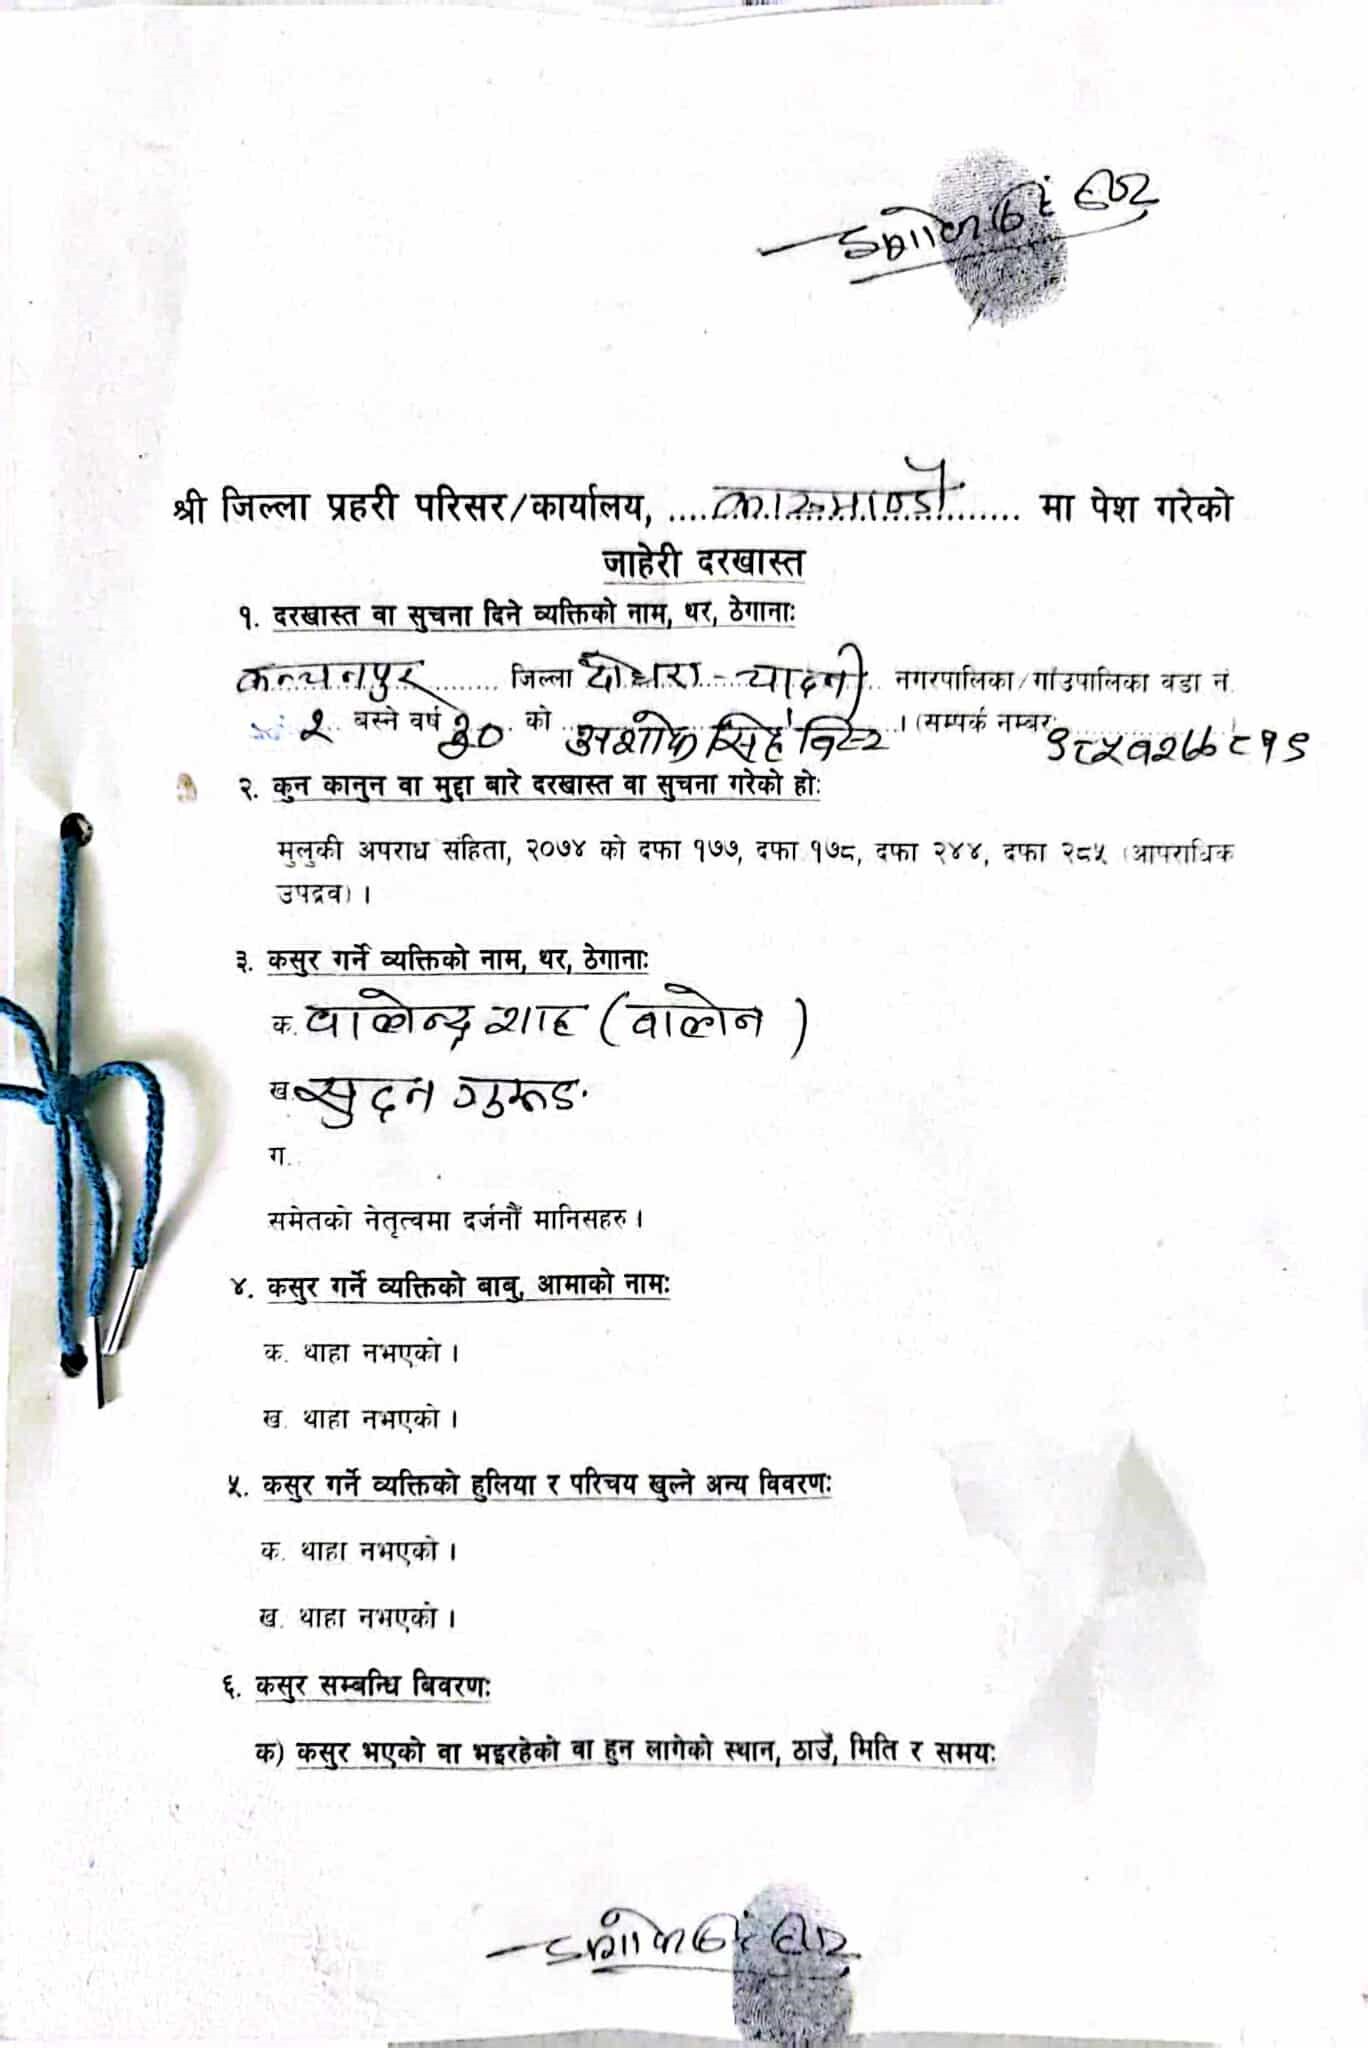 श्री जिल्ला प्रहरी परिसर/कार्यालय, ....काठमाण्डौ.... मा पेश गरेको
जाहेरी दरखास्त
१. दरखास्त वा सुचना दिने व्यक्तिको नाम, थर, ठेगानाः
कन्चनपुर जिल्ला दोधारा - चादनी नगरपालिका/गाउपालिका वडा नं.
२ बस्ने वर्ष ३० को अशोक सिंह बिष्ट । (सम्पर्क नम्बर
२. कुन कानुन वा मुद्दा बारे दरखास्त वा सुचना गरेको होः
मुलुकी अपराध संहिता, २०७४ को दफा १७७, दफा १७८, दफा २४४, दफा २८५ (आपराधिक
उपद्रव) ।
३. कसुर गर्ने व्यक्तिको नाम, थर, ठेगानाः
क. वालेन्द्र शाह (वालेन )
ख. सुदन गुरूङ
ग.
समेतको नेतृत्वमा दर्जनौँ मानिसहरु ।
४. कसुर गर्ने व्यक्तिको बाबु, आमाको नामः
क. थाहा नभएको ।
ख. थाहा नभएको ।
५. कसुर गर्ने व्यक्तिको हुलिया र परिचय खुल्ने अन्य विवरणः
क. थाहा नभएको ।
ख. थाहा नभएको ।
६. कसुर सम्बन्धि विवरणः
क) कसुर भएको वा भइरहेको वा हुन लागेको स्थान, ठाउँ, मिति र समयः